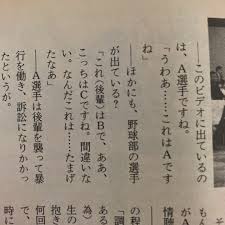 ――このビデオに出ているの
は、A選手ですね。
「うわあ……これはAです
ね」
――ほかにも、野球部の選手
が出ている?
「これ(後輩)はBで、ああ、
こっちはCですね。間違いな
い。なんだこれは……たまげ
たなあ」
――A選手は後輩を襲って暴
行を働き、訴訟になりかかっ
たというが。